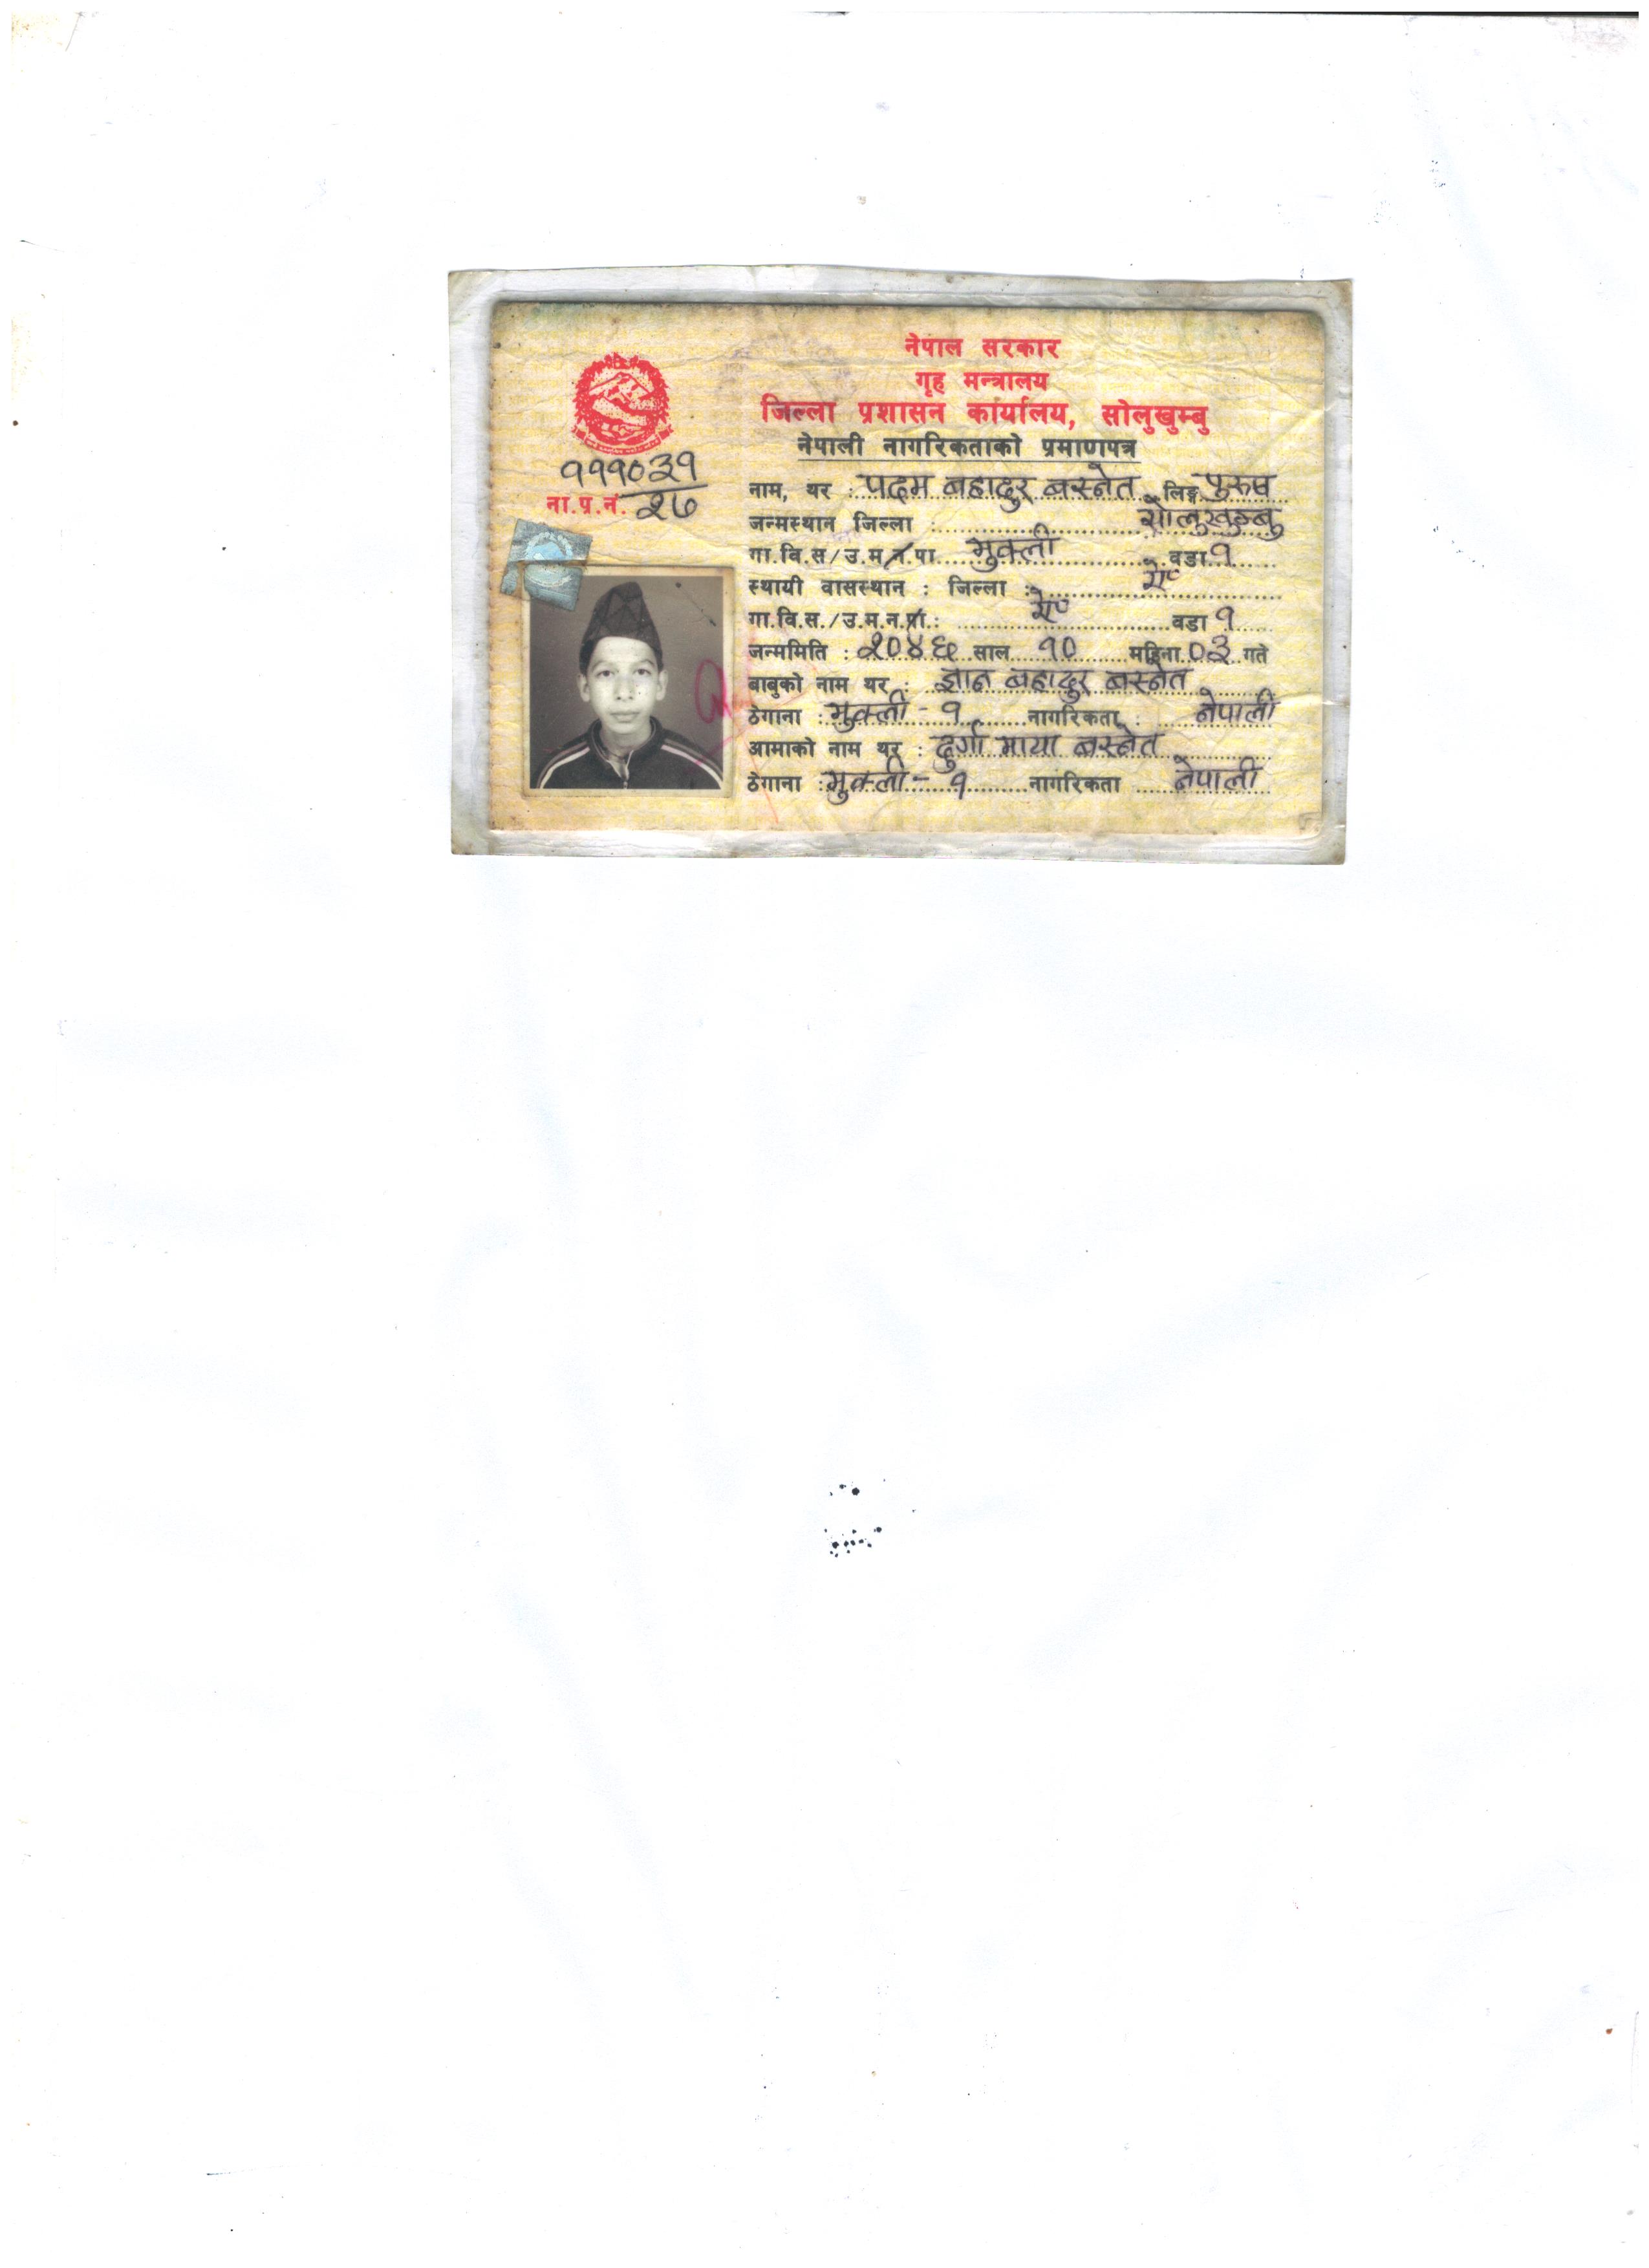 नेपाल सरकार
गृह मन्त्रालय
जिल्ला प्रशासन कार्यालय, सोलुखुम्बु
नेपाली नागरिकताको प्रमाणपत्र
१११०३१
ना.प.नं. २७
नाम, थर : पदम बहादुर बस्नेत लिङ्ग पुरुष
जन्मस्थान जिल्ला : सोलुखुम्बु
गा.वि.स/उ.म.न.पा मुक्ली वडा १
स्थायी वासस्थान : जिल्ला : ऐ०
गा.वि.स./उ.म.न.पा.: ऐ० वडा १
जन्ममिति : २०४६ साल १० महिना ०३ गते
बाबुको नाम थर : ज्ञान बहादुर बस्नेत
ठेगाना : मुक्ली - १ नागरिकता : नेपाली
आमाको नाम थर : दुर्गा माया बस्नेत
ठेगाना : मुक्ली - १ नागरिकता नेपाली